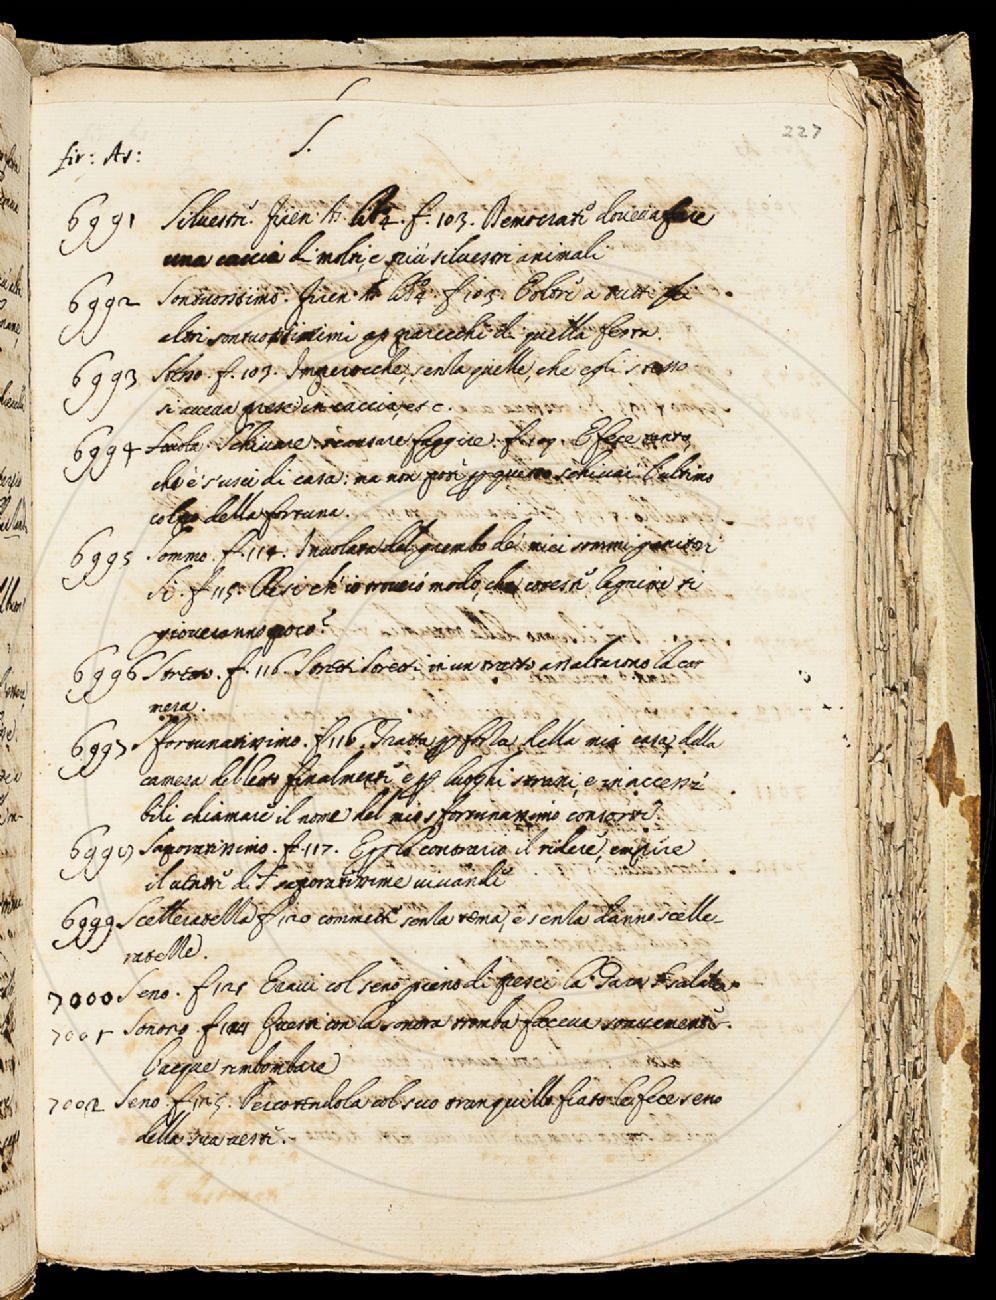 S.
227
fir: As:
6991 Silvestre. firen: As: lib. 4. f. 103. Democrate doveva fare
una caccia di molti, e più silvestri animali
6992 Sontuosissimo. firen: As: lib. 4. f. 103. a tutti
altri sontuosissimi apparecchi di quella festa.
6993 f. 103. Imperocche, senza quelle, che egli stesso
si aveva prese in caccia, e c.
6994 Schivare. f. 109. E fece
ch'è s'uscì di casa: ma non potè per questo schivar l'ultimo
colpo della fortuna.
6995 Sommo. f. 114. Involata del grembo de' miei sommi genitori
Sì. f. 115. sì ch'io trovò modo, che coteste lagrime ti
gioveranno poco?
6996 f. 116. in un tratto assaltarono la ca-
mera.
6997 Sfortunatissimo. f. 116. Tratta per forza della mia casa, della
camera del letto finalmente e per luoghi strani, e inaccessi-
bili chiamare il nome del mio sfortunatissimo consorte.
6998 Saporitissimo. f. 117. E per lo contrario il ridere, empire
il ventre di saporitissime vivande
6999 Scelleratella f. 120 commette senza tema, e senza danno scelle-
ratelle.
7000 Seno. f. 125 Eravi col seno pieno di pesci la
7001 Sonoro. f. 124 Questi con la sonora tromba faceva soavemente
l'acque rimbombare
7002 Seno. f. 125. Percotendola col suo tranquillo fiato le fece seno
della sua veste.